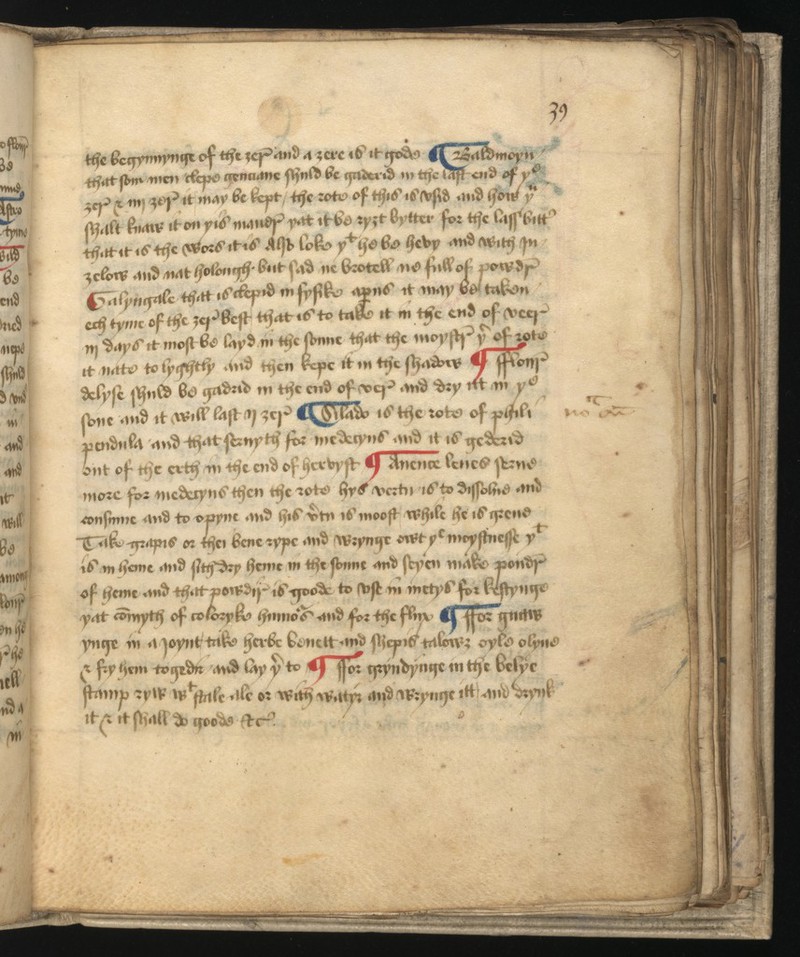 39
the begynnynge of the zer and a zere is it gode ¶ Baldmoyn
that som men clepe genciane shuld be gaderid in the last end of yͤ
zer & iij zer it may be kept / the rote of this is vsid and how yͧ
shalt know it on yis maner yat it be ryzt bytter for the lass bitt
that it is the wors it is Also loke yͭ he be hevy and with in
zelow and nat holough but sad ne brotell ne full of powdr
Galyngale that is clepid in fysike it may be taken
ech tyme of the zer best that is to take it in the end of veer
iij days it most be layd in the sonne that the moystr of rote
it nate to lyghtly and then kepe it in the shadow ¶ fflour
delyse shuld be gadrid in the end of ver and dry it in yͤ
sone and it will last ij zer ¶ is the rote of phili
pendula and that seruyth for medecyns and it is gederid
out of the erth in the end of hervyst ¶ Anence leues serue
more for medecyns then the rote hys vertu is to dissolue and
consume and to opyne and his v̄tu is moost while he is grene
Take grapis or thei bene rype and wrynge owt yͤ moystnesse yͭ
is in heme and sith dry heme in the sonne and seyen make poudr
of heme and that powdir is goode to vse in metys for kestynge
yat cōmyth of coloryke humōs and for the flux ¶ ffor gnaw
ynge in a joynt take herbe benett and shepis talowz oyle olyue
& fry hem togedir and lay yͬ to ¶ ffor gryndynge in the belye
stamp ryw wͭ stale ale or with watyr and wrynge itt and drynk
it & it shall do goode &c